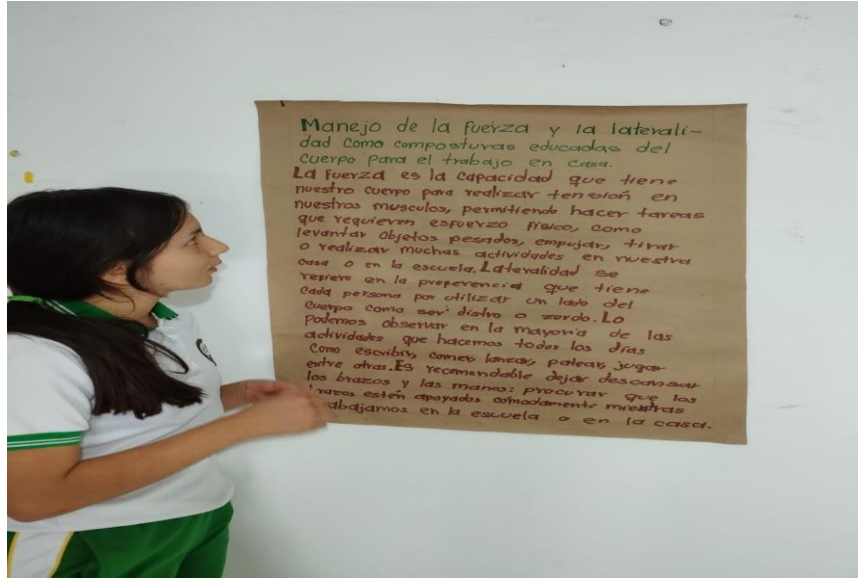 Manejo de la fuerza y la laterali-
dad como composturas educadas del
cuerpo para el trabajo en casa.
La fuerza es la capacidad que tiene
nuestro cuerpo para realizar tensión en
nuestros musculos, permitiendo hacer tareas
que requieren esfuerzo físico, como
levantar objetos pesados, empujar, tirar
o realizar muchas actividades en nuestra
casa o en la escuela. Lateralidad se
refiere en la preferencia que tiene
cada persona por utilizar un lado del
cuerpo como ser: distro o zurdo. Lo
podemos observar en la mayoria de las
actividades que hacemos todos los días
como escribir, comer, lanzar, patear, jugar
entre otras. Es recomendable dejar descansar
los brazos y las manos: procurar que los
brazos estén apoyados cómodamente mientras
trabajamos en la escuela o en la casa.